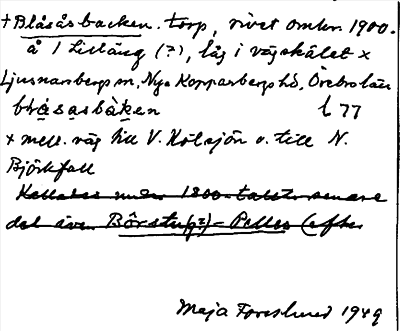 + Blåsåsbacken. torp, rivet omkr. 1900.
å 1 Lilläng (?), låg i vägskälet x
Ljusnarsbergs sn, Nya Kopparbergs hd, Örebro län
blåsasbàken l 77
x mell. väg till V. Kölsjön o. till N.
Björkfall
Kallades under 1800-talets senare
del även Börstu(g?)-Pelles (efter
Maja Forslund 1949